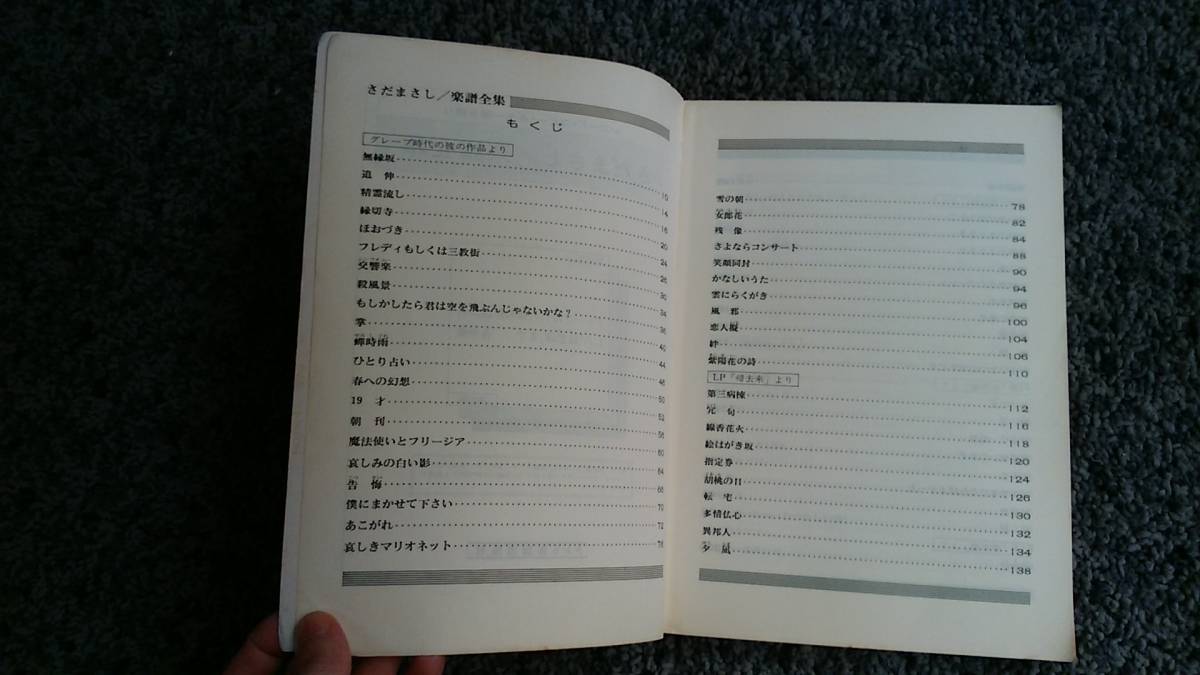 さだまさし／楽譜全集
もくじ
グレープ時代の彼の作品より
無縁坂……10
追　伸……14
精霊流し……16
縁切寺……20
ほおづき……24
フレディもしくは三教街……26
交響楽……30
殺風景……34
もしかしたら君は空を飛ぶんじゃないかな？……36
掌……40
蟬時雨……44
ひとり占い……46
春への幻想……50
19　才……53
朝　刊……56
魔法使いとフリージア……60
哀しみの白い影……64
告　悔……66
僕にまかせて下さい……70
あこがれ……72
哀しきマリオネット……76
雪の朝……78
女郎花……82
残　像……84
さよならコンサート……88
笑顔同封……90
かなしいうた……94
雲にらくがき……96
風　邪……100
恋人擬……104
絆……106
紫陽花の詩……110
LP「帰去来」より
第三病棟……112
冗　句……116
線香花火……118
絵はがき坂……120
指定券……124
胡桃の日……126
転　宅……130
多情仏心……132
異邦人……134
夕　凪……138